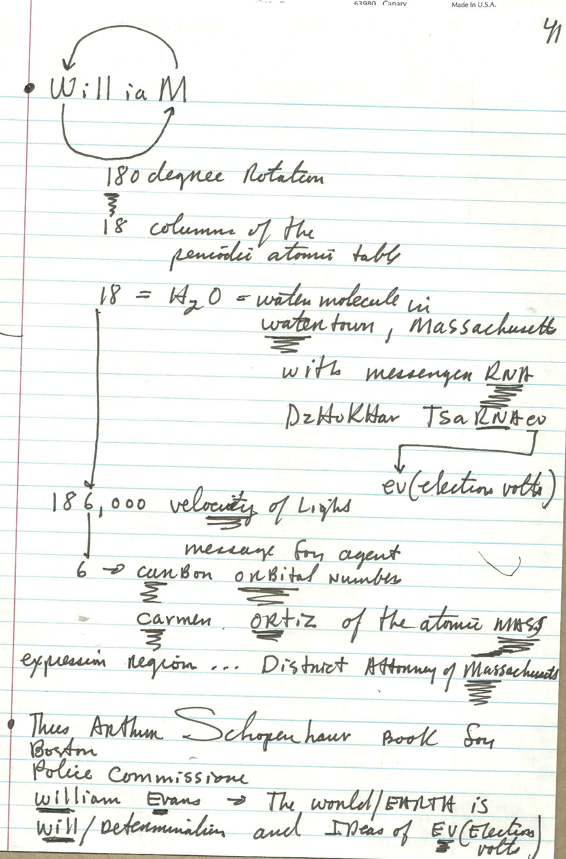 63980 Canary Made In U.S.A.
41
William
180 degree Rotation
18 columns of the
periodic atomic table
18 = H2O = water molecule in
watertown, Massachusetts
with messenger RNA
DzHoKHar TsaRNAev
ev(election volts)
186,000 velocity of Light
message for agent
6 → carBon orBital Number
Carmen ORTiz of the atomic MASS
expression region ... District Attorney of Massachusetts
Thus Arthur Schopenhaur Book for
Boston
Police Commissione
william Evans → The world/EARTH is
Will/Determination and IDeas of EV(Election
volts)